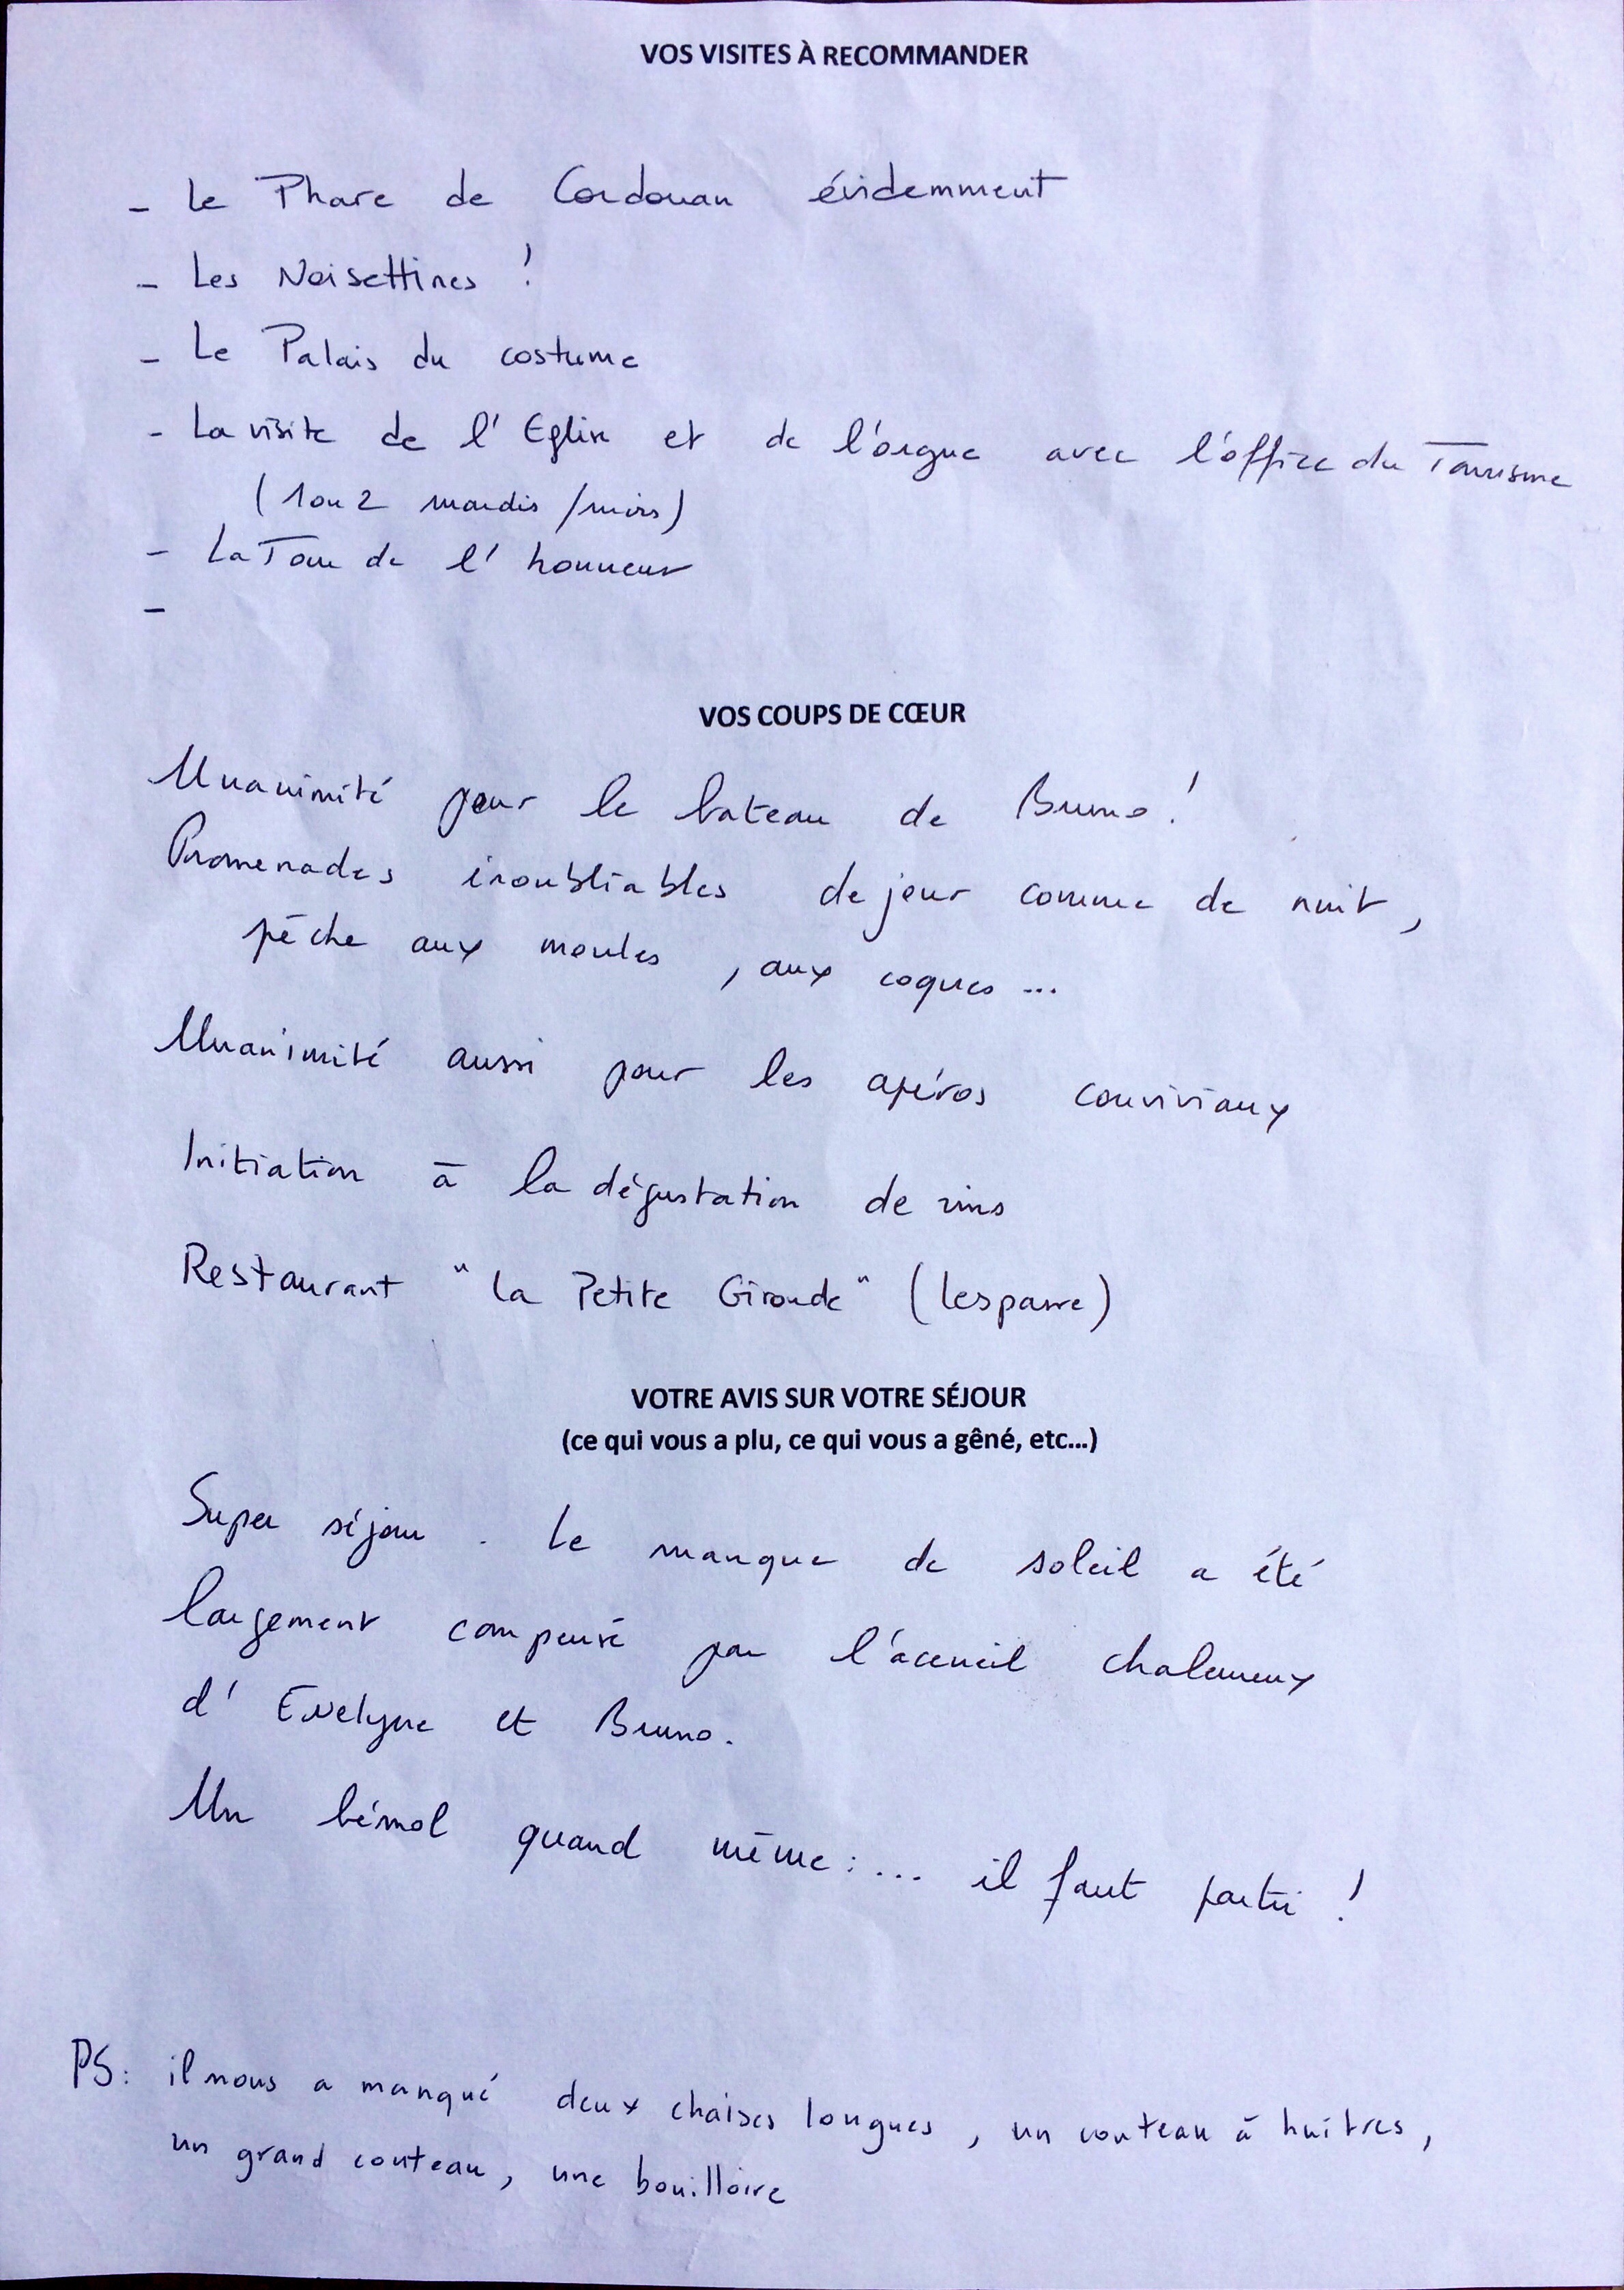 VOS VISITES À RECOMMANDER
- Le Phare de Cordouan évidemment
- Les Noisettines !
- Le Palais du costume
- La visite de l'Eglise et de l'orgue avec l'office du Tourisme
(1 ou 2 mardis / mois)
- La Tour de l'honneur
-
VOS COUPS DE CŒUR
Unanimité pour le bateau de Bruno !
Promenades inoubliables de jour comme de nuit,
pêche aux moules, aux coques ...
Unanimité aussi pour les apéros conviviaux
Initiation à la dégustation de vins
Restaurant "La Petite Gironde" (Lesparre)
VOTRE AVIS SUR VOTRE SÉJOUR
(ce qui vous a plu, ce qui vous a gêné, etc...)
Super séjour. Le manque de soleil a été
largement compensé par l'accueil chaleureux
d'Evelyne et Bruno.
Un bémol quand même : ... il faut partir !
PS : il nous a manqué deux chaises longues, un couteau à huîtres,
un grand couteau, une bouilloire